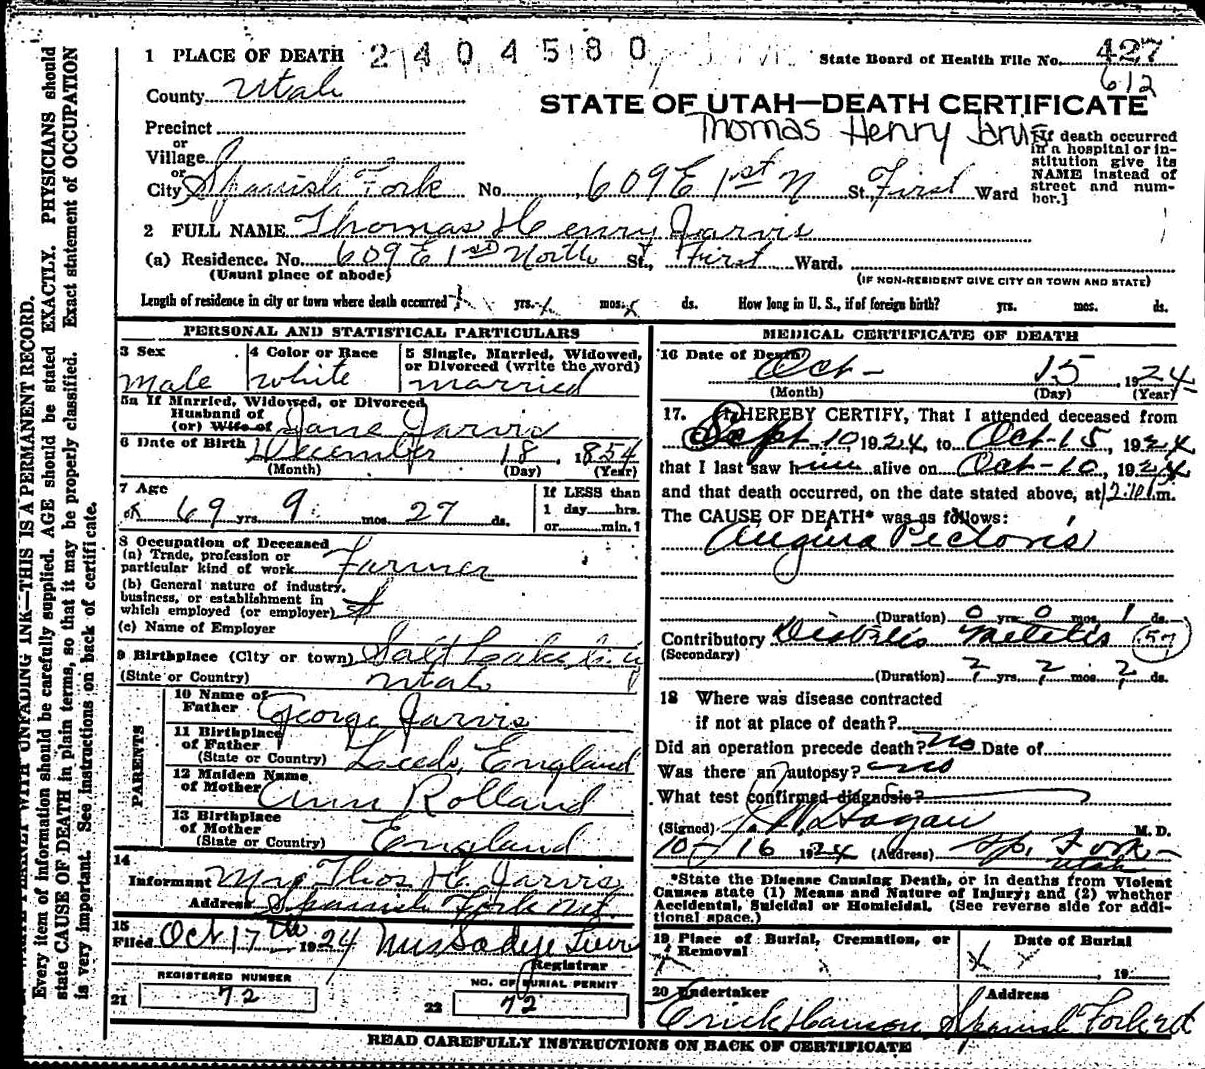 1 PLACE OF DEATH 2404580 State Board of Health File No. 427
612
County Utah
STATE OF UTAH—DEATH CERTIFICATE
Thomas Henry Jarvis
Precinct
or
Village
or
City Spanish Fork No. 609 E 1st N St. First Ward
[If death occurred in a hospital or institution give its NAME instead of street and number.]
2 FULL NAME Thomas Henry Jarvis
(a) Residence. No. 609 E 1st North St., First Ward.
(Usual place of abode) (IF NON-RESIDENT GIVE CITY OR TOWN AND STATE)
Length of residence in city or town where death occurred yrs. mos. ds. How long in U. S., if of foreign birth? yrs. mos. ds.
PERSONAL AND STATISTICAL PARTICULARS
3 Sex
male
4 Color or Race
white
5 Single, Married, Widowed, or Divorced (write the word)
married
5a If Married, Widowed, or Divorced
Husband of
(or) Wife of Jane Jarvis
6 Date of Birth December 18, 1854
(Month) (Day) (Year)
7 Age
69 yrs. 9 mos. 27 ds.
If LESS than
1 day hrs.
or min.?
8 Occupation of Deceased
(a) Trade, profession or
particular kind of work Farmer
(b) General nature of industry,
business, or establishment in
which employed (or employer)
(c) Name of Employer
9 Birthplace (City or town) Salt Lake City
(State or Country) Utah
PARENTS
10 Name of
Father George Jarvis
11 Birthplace
of Father
(State or Country) Leeds, England
12 Maiden Name
of Mother Ann Rolland
13 Birthplace
of Mother
(State or Country) England
14
Informant Mrs Thos H. Jarvis
Address Spanish Fork Ut.
15
Filed Oct 17th 1924 Miss Sadye
Registrar
REGISTERED NUMBER NO. OF BURIAL PERMIT
21 72 22 72
MEDICAL CERTIFICATE OF DEATH
16 Date of Death
Oct- 15, 1924
(Month) (Day) (Year)
17. I HEREBY CERTIFY, That I attended deceased from
Sept-10, 1924, to Oct-15, 1924
that I last saw him alive on Oct-10, 1924
and that death occurred, on the date stated above, at m.
The CAUSE OF DEATH* was as follows:
Angina Pectoris
(Duration) 0 yrs. 0 mos. 1 ds.
Contributory Diabetis Melitis (57)
(Secondary)
(Duration) ? yrs. ? mos. ? ds.
18 Where was disease contracted
if not at place of death?
Did an operation precede death? No Date of
Was there an autopsy? no
What test confirmed diagnosis?
(Signed) Hagan M. D.
10-16 1924 (Address) Sp. Fork-
Utah
*State the Disease Causing Death, or in deaths from Violent
Causes state (1) Means and Nature of Injury; and (2) whether
Accidental, Suicidal or Homicidal. (See reverse side for additional space.)
19 Place of Burial, Cremation, or
Removal
Date of Burial
, 19
20 Undertaker Address
Erick Hanson Spanish Fork Ut
READ CAREFULLY INSTRUCTIONS ON BACK OF CERTIFICATE
WRITE PLAINLY WITH UNFADING INK—THIS IS A PERMANENT RECORD.
Every item of information should be carefully supplied. AGE should be stated EXACTLY. PHYSICIANS should
state CAUSE OF DEATH in plain terms, so that it may be properly classified. Exact statement of OCCUPATION
is very important. See instructions on back of certificate.